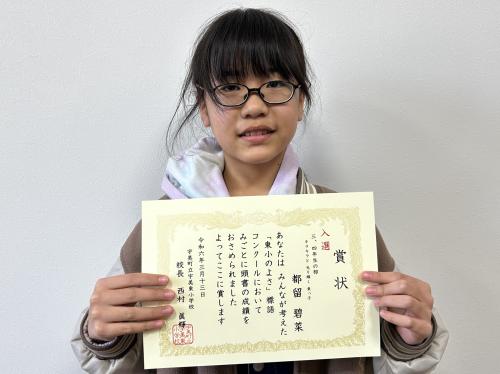 賞状
入選
三、四年生の部
都留 碧菜
あなたは みんなが考えた
「東小のよさ」標語
コンクールにおいて
みごとに頭書の成績を
おさめられました
よってここに賞します
令和六年三月十三日
宇美町立宇美東小学校
校長 西村 眞